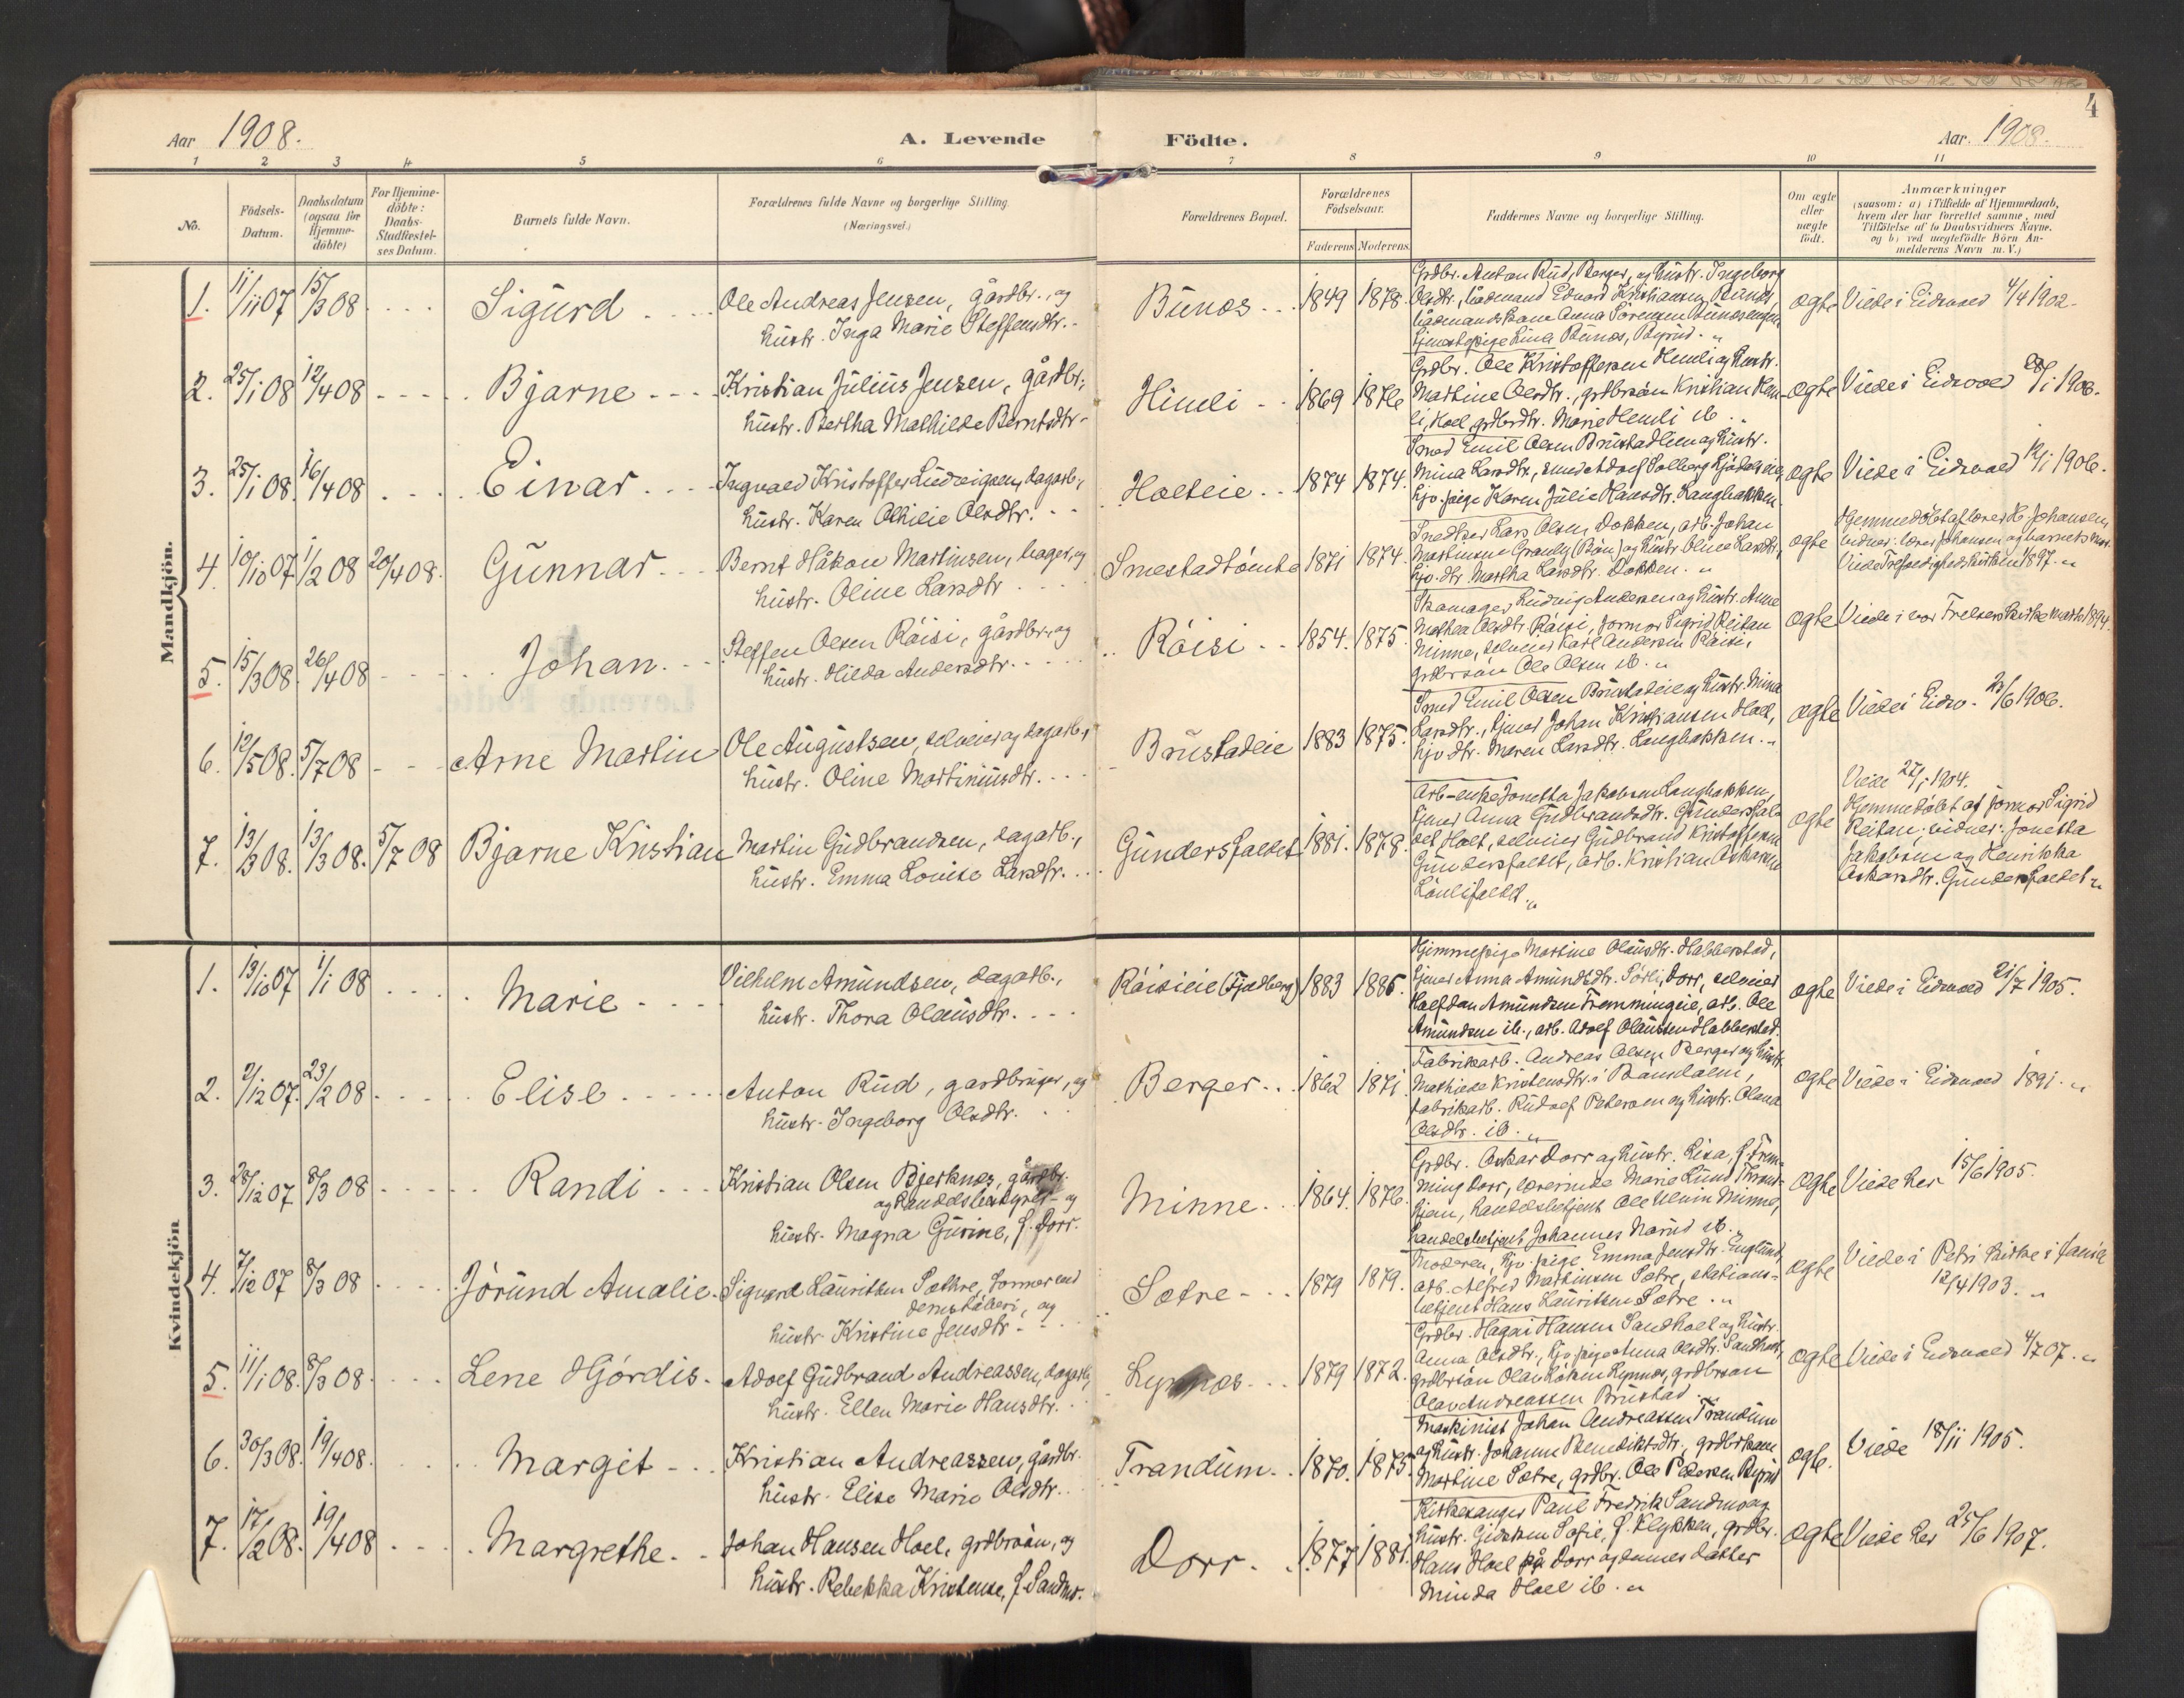 4
Aar 1908.
A. Levende Födte.
Aar. 1908.
1 2 3 4 5 6 7 8 9 10 11
No.
Födsels-
Datum.
Daabsdatum
(ogsaa for
Hjemme-
döbte)
For Hjemme-
döbte:
Daabs-
Stadfæstel-
ses Datum.
Barnets fulde Navn.
Forældrenes fulde Navne og borgerlige Stilling.
(Næringsvei.)
Forældrenes Bopæl.
Forældrenes
Födselsaar.
Faderens Moderens
Faddernes Navne og borgerlige Stilling.
Om ægte
eller
uægte
födt.
Anmærkninger
(saasom: a) i Tilfælde af Hjemmedaab,
hvem der har forrettet samme, med
Tilföielse af to Daabsvidners Navne.
og b) ved uægtefödte Börn An-
melderens Navn m. V.)
Mandkjön.
1. 11/11 07 15/3 08 Sigurd
Ole Andreas Jensen, gårdbr., og
hustr. Inga Marie Steffensdtr.
Bunæs 1849 1878.
Grdbr. Anton Rud, Berger, og hustr. Ingeborg
Olsdtr., Eduard Kristiansen Bunæs,
Anna Sørensen
tjenestepige Lina Bunæs, Byrud. "
ægte Viede i Eidsvold 4/4 1902.
2. 25/1 08 12/4 08 Bjarne
Kristian Julius Jensen, gårdbr.,
hustr. Bertha Mathilde Berntsdtr.
Himli 1869 1876
Grdbr. Ole Kristoffersen Hemli og hustr.
Martine Olsdtr., grdbrsøn Kristian Hem-
li, Hoel, grdbrdtr. Marie Hemli ib.
ægte Viede i Eidsvold 28/1 1906.
3. 25/1 08. 16/4 08 Einar
Ingvald Kristoffer Ludvigsen, dagarb.,
hustr. Karen Othilie Olsdtr.
Holteie 1874 1874.
Smed Emil Olsen Brustadlien og hustr.
Mina Larsdtr., smed Adolf Solberg
hjv. pige Karen Julie Hansdtr. Langbakken.
ægte Viede i Eidsvold 12/1 1906.
4. 10/10 07 1/2 08 20/4 08. Gunnar
Bernt Håkon Martinsen, bager, og
hustr. Oline Larsdtr
Smestadtomte 1871 1874.
Snedker Lars Olsen Dokken, arb. Johan
Martinsen Granly (Bøn) og hustr Oline Larsdtr.,
hjv. dtr. Martha Larsdtr. Dokken. "
ægte
Hjemmedøbt af lærer H. Johansen,
vidner: lærer Johansen og barnets mor.
Viede Trefoldighedskirken 1897. "
5. 15/3 08. 26/4 08 Johan
Steffen Olsen Råisi, gårdbr. og
hustr. Hilda Andersdtr.
Råisi 1854. 1875.
Skomager Ludvig Andersen og hustr. Anne
Mathea Olsdtr. Råisi, jormor Sigrid Reitan
Minne, selveier Karl Andersen Råisi,
grdbrsøn Ole Olsen ib. "
ægte Viede i vor Frelsers kirke marts 1894.
6. 12/5 08. 5/7 08 Arne Martin
Ole Augustsen, selveier og dagarb.,
hustr. Oline Martiniusdtr.
Brustadeie 1883 1875.
Smed Emil Olsen Brustadeie og hustr. Mina
Larsdtr., tjener Johan Kristiansen Hoel,
hjv. dtr. Maren Larsdtr. Langbakken. "
ægte Viede i Eidsv. 23/6 1906.
7. 13/3 08. 13/3 08. 5/7 08 Bjarne Kristian
Martin Gudbrandsen, dagarb.,
hustr. Emma Louise Larsdtr.
Gundersfaldet 1881. 1878.
Arb-enke Jonetta Jakobsen Langbakken,
tjener Anna Gudbrandsdtr. Gundersfal-
det, Holt, selveier Gudbrand Kristoffersen
Gundersfaldet, arb. Kristian Oskarsen
ægte
Viede 27/1 1904.
Hjemmedøbt af jormor Sigrid
Reitan; vidner: Jonetta
Jakobsen og Henrikka
Oskarsdtr. Gundersfaldet "
Kvindekjön
1. 13/10 07 1/1 08 Marie
Vilhelm Amundsen, dagarb.,
hustr. Thora Olausdtr.
Råisieie (Fjeldberg) 1883 1885.
Hjemmepige Martine Olausdtr. Habberstad,
tjener Anna Amundsdtr. Sørli, Dorr, selveier
Halfdan Amundsen Fremmingeie, arb. Ole
Amundsen ib., arb. Adolf Olaussen Habberstad.
ægte Viede i Eidsvold 21/7 1905.
2. 2/12 07. 23/2 08 Elise
Anton Rud, gardbruger, og
hustr. Ingeborg Olsdtr.
Berger 1862 1871
Fabrikarb. Andreas Olsen Berger og hustr.
Mathilde Kristensdtr. i
fabrikarb. Rudolf Petersen og hustr. Olana
Olsdtr. ib. "
ægte Viede i Eidsvold 1891. "
3. 28/12 07 8/3 08 Randi
Kristian Olsen Bjerknæs, gårdbr.
og handelsbestyrer og
hustr. Magna Gurine, f. Dorr.
Minne 1864. 1876.
Grdbr. Oskar Dorr og hustr. Lisa, f. Frem-
ming Dorr, lærerinde Marie Lund Thrond-
hjem, handelsbetjent Ole Ulvin Minne,
handelsbetjent Johannes Norud ib. "
ægte Viede her 15/6 1905.
4. 7/12 07 8/3 08 Jørund Amalie
Sigvard Lauritsen Sæthre, former ved
hustr. Kristine Jensdtr.
Sætre 1879 1879.
Moderen, hjv. pige Emma Jensdtr. Englund,
arb. Alfred Martinsen Sætre, stations-
betjent Hans Lauritsen Sætre. "
ægte Viede i Petri kirke i
12/4 1903. "
5. 11/1 08. 8/3 08 Lene Hjørdis
Adolf Gudbrand Andreassen, dagarb.,
hustr. Ellen Marie Hansdtr.
Lynnæs 1879 1872.
Grdbr. Hagai Hansen Sandholt og hustr.
Anna Olsdtr., hjv. pige Anna Olsdtr. Sandholt,
grdbrsøn Olai Lynnæs, grdbrsøn
Olav Andreassen Brustad. "
ægte Viede i Eidsvold 4/7 07. "
6. 30/3 08. 19/4 08. Margit
Kristian Andreassen, gårdbr.
hustr. Elise Marie Olsdtr.
Trandum 1870. 1875
Maskinist Johan Andreassen Trandum
og hustr. Johanne Benediktsdtr., grdbrkone
Martine Sætre, grdbr. Ole Pedersen Byrud
ægte. Viede 18/11 1905.
7. 17/2 08. 19/4 08 Margrethe
Johan Hansen Hoel, grdbrsøn, og
hustr. Rebekka Kristense, f. Sandmo.
Dorr. 1877 1881.
Kirkesanger Paul Fredrik Sandmo og
hustr. Gidsken Sofie, f. Klykken, grdbr.
Hans Hoel på Dorr og dennes datter
Minda Hoel ib. "
ægte Viede her 25/6 1907.